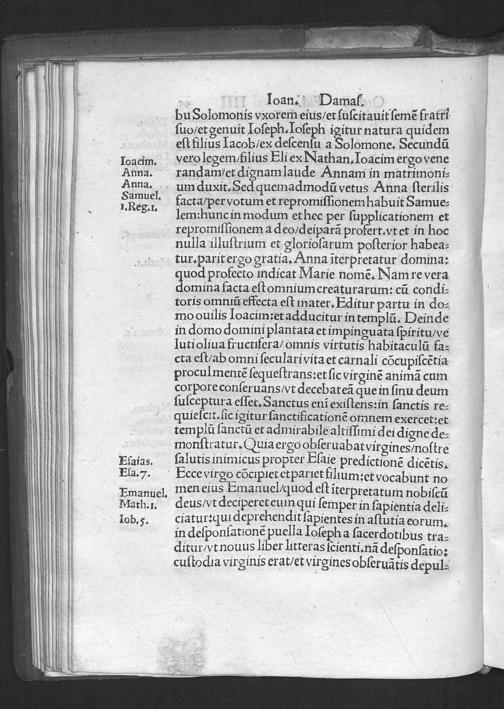 Ioan. Damaſ.
bu Solomonis vxorem eius/et ſuſcitauit ſemē fratri
ſuo/et genuit Ioſeph. Ioſeph igitur natura quidem
eſt filius Iacob/ex deſcenſu a Solomone. Secundū
Ioacim.
vero legem/filius Eli ex Nathan. Ioacim ergo vene
Anna.
randam/et dignam laude Annam in matrimoni-
Anna.
um duxit. Sed quemadmodū vetus Anna ſterilis
Samuel.
facta/per votum et repromiſſionem habuit Samue-
1.Reg.1.
lem:hunc in modum et hec per ſupplicationem et
repromiſſionem a deo/deiparā profert. vt et in hoc
nulla illuſtrium et glorioſarum poſterior habea-
tur. parit ergo gratia. Anna īterpretatur domina:
quod profecto indicat Marie nomē. Nam re vera
domina facta eſt omnium creaturarum: cū condi-
toris omniū effecta eſt mater. Editur partu in do-
mo ouilis Ioacim:et adducitur in templū. Deinde
in domo domini plantata et impinguata ſpiritu/ve
luti oliua fructifera/omnis virtutis habitaculū fa-
cta eſt/ab omni ſeculari vita et carnali cōcupiſcētia
procul mentē ſequeſtrans:et ſic virginē animā cum
corpore conſeruans/vt decebat eā que in ſinu deum
ſuſceptura eſſet. Sanctus enī exiſtens:in ſanctis re-
quieſcit. ſic igitur ſanctificationē omnem exercet:et
templū ſanctū et admirabile altiſſimi dei digne de-
monſtratur. Quia ergo obſeruabat virgines/noſtre
Eſaias.
ſalutis inimicus propter Eſaie predictionē dicētis.
Eſa.7.
Ecce virgo cōcipiet et pariet filium:et vocabunt no
Emanuel.
men eius Emanuel/quod eſt īterpretatum nobiſcū
Math.1.
deus/vt deciperet eum qui ſemper in ſapientia deli-
Iob.5.
ciatur:qui deprehendit ſapientes in aſtutia eorum.
in deſponſationē puella Ioſeph a ſacerdotibus tra-
ditur/vt nouus liber litteras ſcienti. nā deſponſatio:
cuſtodia virginis erat/et virgines obſeruātis depul-